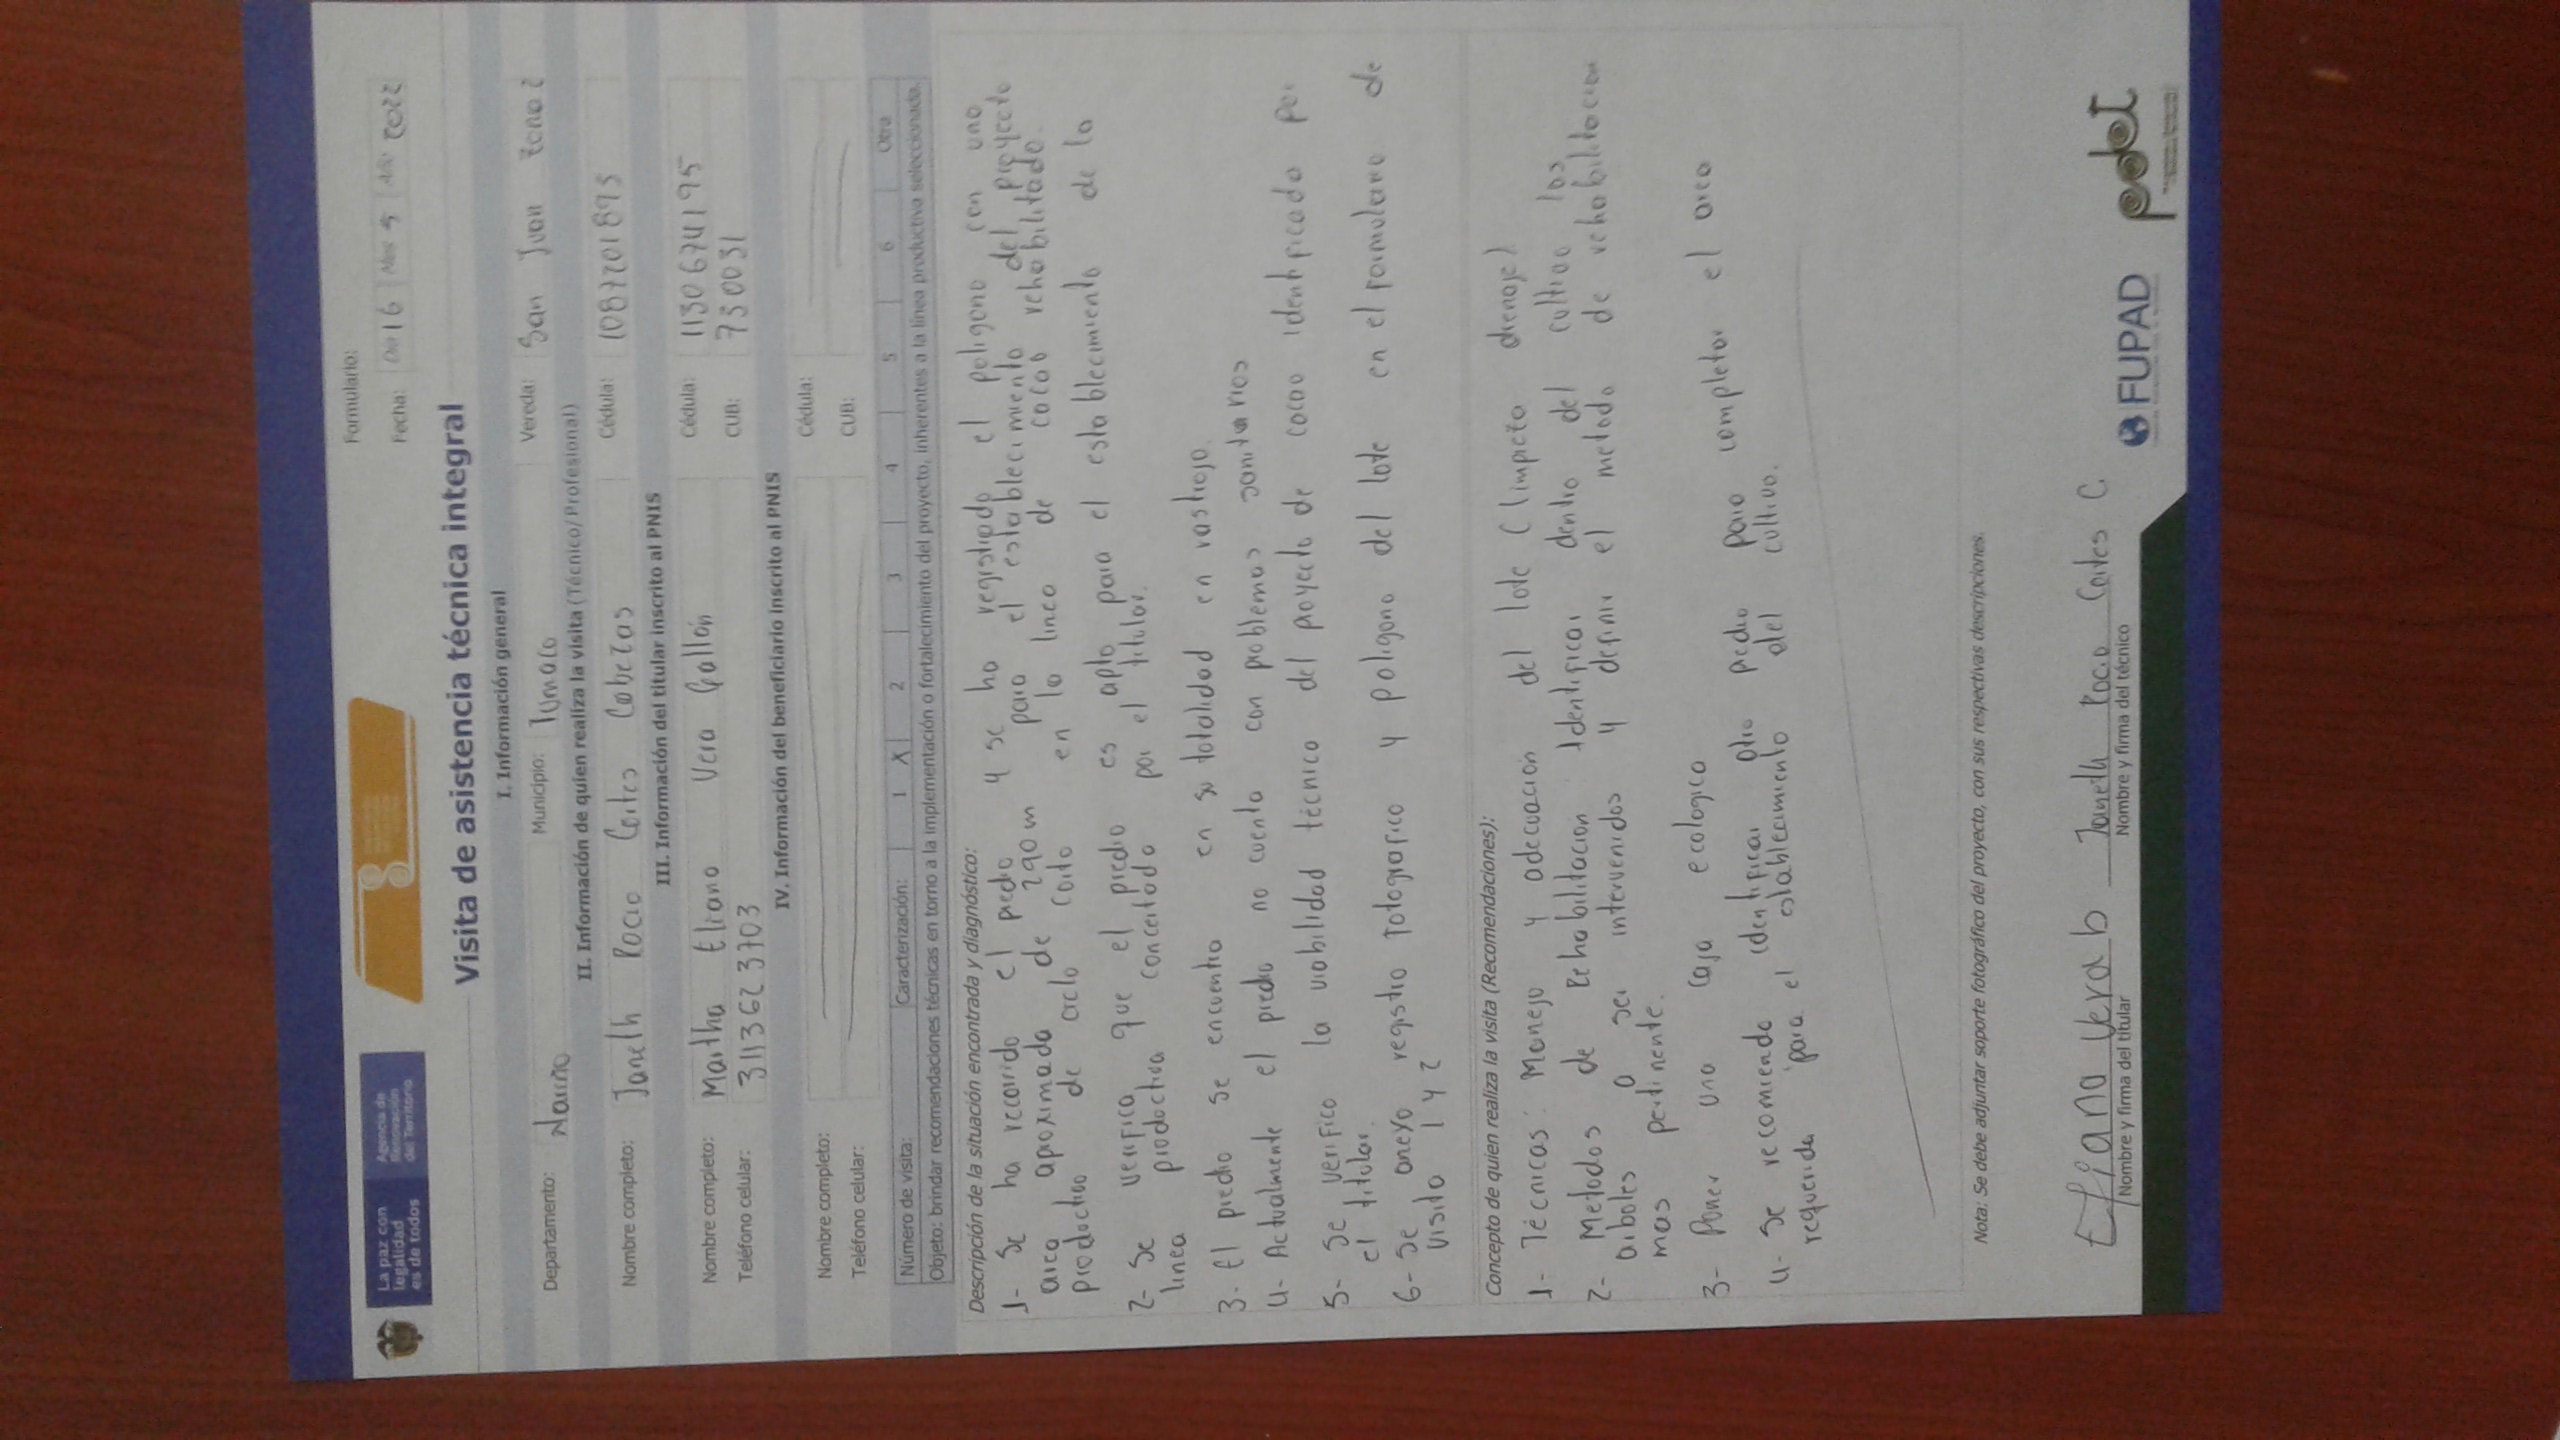 La paz con
legalidad
es de todos
Agencia de
Renovación
del Territorio
Formulario:
Fecha: Día 16 Mes 5 Año 2022
Visita de asistencia técnica integral
I. Información general
Departamento: Nariño Municipio: Tumaco Vereda: San Juan zona 2
II. Información de quien realiza la visita (Técnico/Profesional)
Nombre completo: Janeth Rocio Cortes Cabezas Cédula: 1087201893
III. Información del titular inscrito al PNIS
Nombre completo: Martha Eliana Vera Gallón Cédula: 1130674195
Teléfono celular: 3113623703 CUB: 730031
IV. Información del beneficiario inscrito al PNIS
Nombre completo: Cédula:
Teléfono celular: CUB:
Número de visita: Caracterización: 1 X 2 3 4 5 6 Otra
Objeto: brindar recomendaciones técnicas en torno a la implementación o fortalecimiento del proyecto, inherentes a la línea productiva seleccionada.
Descripción de la situación encontrada y diagnóstico:
1- Se ha recorrido el predio y se ha registrado el poligono con una
area aproximada de 290 m para el establecimiento del proyecto
productivo de ciclo corto en la linea de cacao rehabilitado.
2- Se verifica que el predio es apto para el establecimiento de la
linea productiva concertada por el titular.
3- El predio se encuentra en su totalidad en rastrojo.
4- Actualmente el predio no cuenta con problemas sanitarios
5- Se verifico la viabilidad técnica del proyecto de cacao identificado por
el titular.
6- Se anexo registro fotografico y poligono del lote en el formulario de
visita 1 y 2
Concepto de quien realiza la visita (Recomendaciones):
1- Técnicas: Manejo y adecuación del lote (limpieza drenaje).
2- Metodos de Rehabilitación: Identificar dentro del cultivo los
arboles a ser intervenidos y definir el metodo de rehabilitacion
mas pertinente.
3- Poner una caja ecologica
4- Se recomienda identificar otro predio para completar el area
requerida para el establecimiento del cultivo.
Nota: Se debe adjuntar soporte fotográfico del proyecto, con sus respectivas descripciones.
Eliana Vera b Janeth Rocio Cortes C.
Nombre y firma del titular Nombre y firma del técnico
FUPAD
pdet